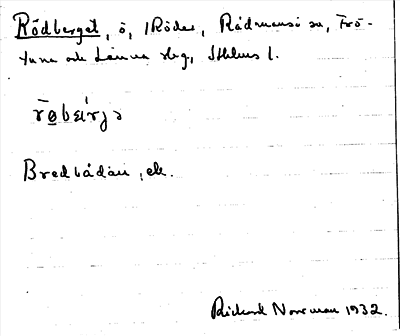 Rödberget, ö, i Röder, Rådmansö sn, Frö-
tuna och Länna slg, Sthlms l.
Bredbådan, ek.
Rickard Norrman 1932.